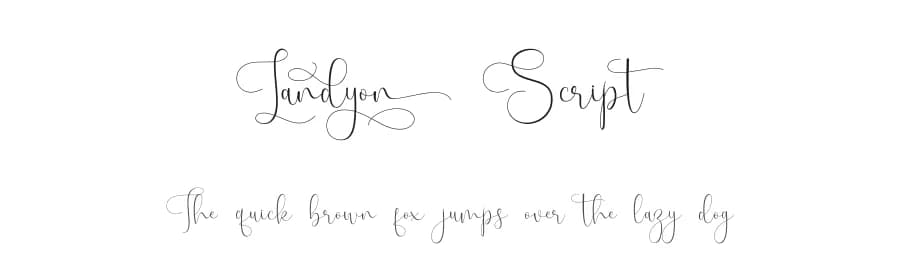 Landyon Script
The quick brown fox jumps over the lazy dog